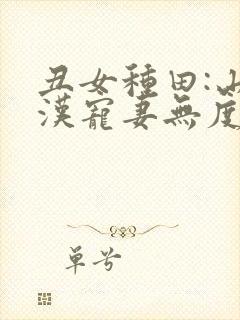 丑女種田:山
漢寵妻無度
單兮